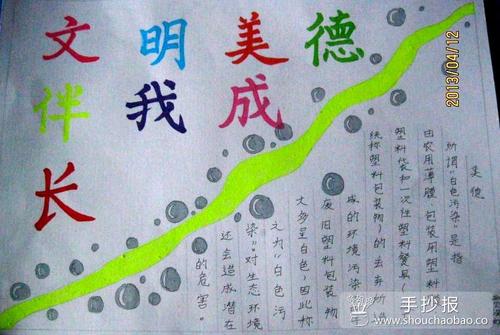 文明美德
伴我成
长
美德
所谓"白色污染"是指
由农用薄膜、包装用塑料
塑料袋和一次性塑料餐具(
统称塑料包装物)的丢弃所
成的环境污染
废旧塑料包装物
大多呈白色,因此称
之为"白色污
染"对生态环境
还去造成潜在
的危害。
2013/04/12
手抄报
www.shouchaobao.co